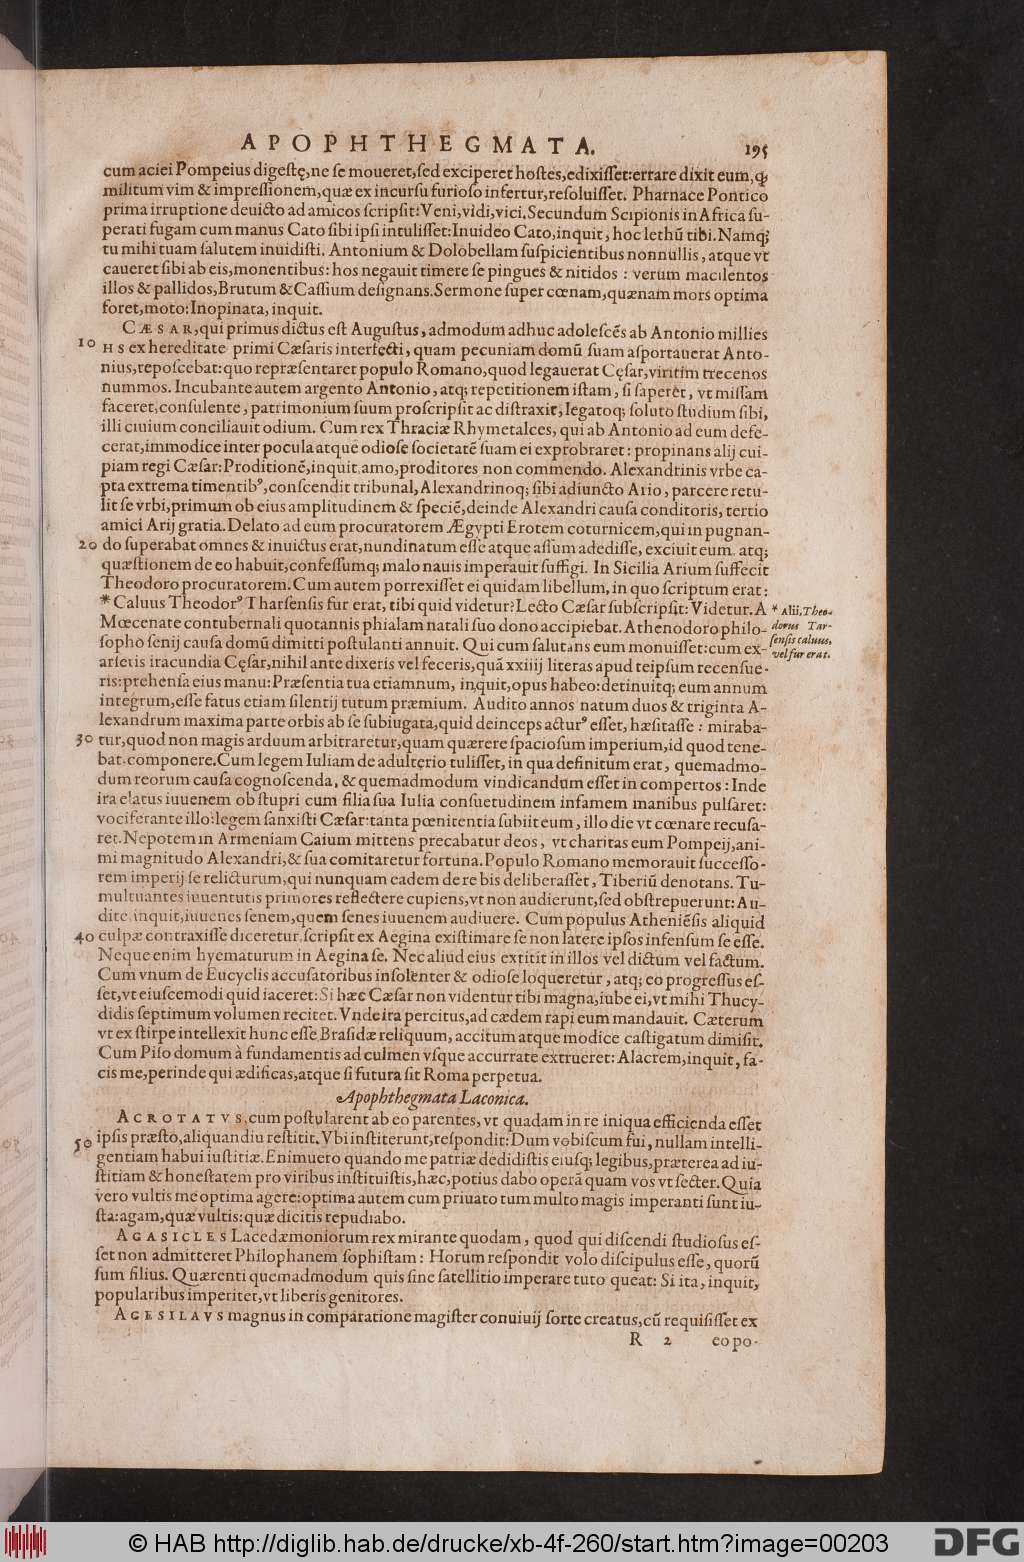 APOPHTHEGMATA. 195
cum aciei Pompeius digestę, ne se moueret, sed exciperet hostes, edixisset: errare dixit eum, ꝙ
militum vim & impressionem, quæ ex incursu furioso infertur, resoluisset. Pharnace Pontico
prima irruptione deuicto ad amicos scripsit: Veni, vidi, vici. Secundum Scipionis in Africa su-
perati fugam cum manus Cato sibi ipsi intulisset: Inuideo Cato, inquit, hoc lethũ tibi. Namq;
tu mihi tuam salutem inuidisti. Antonium & Dolobellam suspicientibus nonnullis, atque vt
caueret sibi ab eis, monentibus: hos negauit timere se pingues & nitidos: verum macilentos
illos & pallidos, Brutum & Cassium designans. Sermone super cœnam, quænam mors optima
foret, moto: Inopinata, inquit.
CÆSAR, qui primus dictus est Augustus, admodum adhuc adolescẽs ab Antonio millies
10 HS ex hereditate primi Cæsaris interfecti, quam pecuniam domũ suam asportauerat Anto-
nius, reposcebat: quo repræsentaret populo Romano, quod legauerat Cęsar, viritim trecenos
nummos. Incubante autem argento Antonio, atq; repetitionem istam, si saperet, vt missam
faceret, consulente, patrimonium suum proscripsit ac distraxit, legatoq; soluto studium sibi,
illi ciuium conciliauit odium. Cum rex Thraciæ Rhymetalces, qui ab Antonio ad eum defe-
cerat, immodice inter pocula atque odiose societatẽ suam ei exprobraret: propinans alij cui-
piam regi Cæsar: Proditionẽ, inquit, amo, proditores non commendo. Alexandrinis vrbe ca-
pta extrema timentibꝰ, conscendit tribunal, Alexandrinoq; sibi adiuncto Ario, parcere retu-
lit se vrbi, primum ob eius amplitudinem & speciẽ, deinde Alexandri causa conditoris, tertio
amici Arij gratia. Delato ad eum procuratorem Ægypti Erotem coturnicem, qui in pugnan-
20 do superabat omnes & inuictus erat, nundinatum esse atque assum adedisse, exciuit eum, atq;
quæstionem de eo habuit, confessumq; malo nauis imperauit suffigi. In Sicilia Arium suffecit
Theodoro procuratorem. Cum autem porrexisset ei quidam libellum, in quo scriptum erat:
* Caluus Theodorꝰ Tharsensis fur erat, tibi quid videtur? Lecto Cæsar subscripsit: Videtur. A
* Alii, Theo-
dorus Tar-
sensis caluus,
vel fur erat.
Mœcenate contubernali quotannis phialam natali suo dono accipiebat. Athenodoro philo-
sopho senij causa domũ dimitti postulanti annuit. Qui cum salutans eum monuisset: cum ex-
arseris iracundia Cęsar, nihil ante dixeris vel feceris, quã xxiiij literas apud teipsum recensue-
ris: prehensa eius manu: Præsentia tua etiamnum, inquit, opus habeo: detinuitq; eum annum
integrum, esse fatus etiam silentij tutum præmium. Audito annos natum duos & triginta A-
lexandrum maxima parte orbis ab se subiugata, quid deinceps acturꝰ esset, hæsitasse: miraba-
30 tur, quod non magis arduum arbitraretur, quam quærere spaciosum imperium, id quod tene-
bat, componere. Cum legem Iuliam de adulterio tulisset, in qua definitum erat, quemadmo-
dum reorum causa cognoscenda, & quemadmodum vindicandum esset in compertos: Inde
ira elatus iuuenem ob stupri cum filia sua Iulia consuetudinem infamem manibus pulsaret:
vociferante illo: legem sanxisti Cæsar: tanta pœnitentia subiit eum, illo die vt cœnare recusa-
ret. Nepotem in Armeniam Caium mittens precabatur deos, vt charitas eum Pompeij, ani-
mi magnitudo Alexandri, & sua comitaretur fortuna. Populo Romano memorauit successo-
rem imperij se relicturum, qui nunquam eadem de re bis deliberasset, Tiberiũ denotans. Tu-
multuantes iuuentutis primores reflectere cupiens, vt non audierunt, sed obstrepuerunt: Au-
dite, inquit, iuuenes senem, quem senes iuuenem audiuere. Cum populus Atheniẽsis aliquid
40 culpæ contraxisse diceretur, scripsit ex Aegina existimare se non latere ipsos infensum se esse.
Neque enim hyematurum in Aegina se. Nec aliud eius extitit in illos vel dictum vel factum.
Cum vnum de Eucyclis accusatoribus insolenter & odiose loqueretur, atq; eo progressus es-
set, vt eiuscemodi quid iaceret: Si hæc Cæsar non videntur tibi magna, iube ei, vt mihi Thucy-
didis septimum volumen recitet. Vnde ira percitus, ad cædem rapi eum mandauit. Cæterum
vt ex stirpe intellexit hunc esse Brasidæ reliquum, accitum atque modice castigatum dimisit.
Cum Piso domum à fundamentis ad culmen vsque accurrate extrueret: Alacrem, inquit, fa-
cis me, perinde qui ædificas, atque si futura sit Roma perpetua.
Apophthegmata Laconica.
ACROTATVS, cum postularent ab eo parentes, vt quadam in re iniqua efficienda esset
50 ipsis præsto, aliquandiu restitit. Vbi institerunt, respondit: Dum vobiscum fui, nullam intelli-
gentiam habui iustitiæ. Enimuero quando me patriæ dedidistis eiusq; legibus, præterea ad iu-
stitiam & honestatem pro viribus instituistis, hæc, potius dabo operã quam vos vt secter. Quia
vero vultis me optima agere: optima autem cum priuato tum multo magis imperanti sunt iu-
sta: agam, quæ vultis: quæ dicitis repudiabo.
AGASICLES Lacedæmoniorum rex mirante quodam, quod qui discendi studiosus es-
set non admitteret Philophanem sophistam: Horum respondit volo discipulus esse, quorũ
sum filius. Quærenti quemadmodum quis sine satellitio imperare tuto queat: Si ita, inquit,
popularibus imperitet, vt liberis genitores.
AGESILAVS magnus in comparatione magister conuiuij sorte creatus, cũ requisisset ex
R 2 eo po-
© HAB http://diglib.hab.de/drucke/xb-4f-260/start.htm?image=00203
DFG